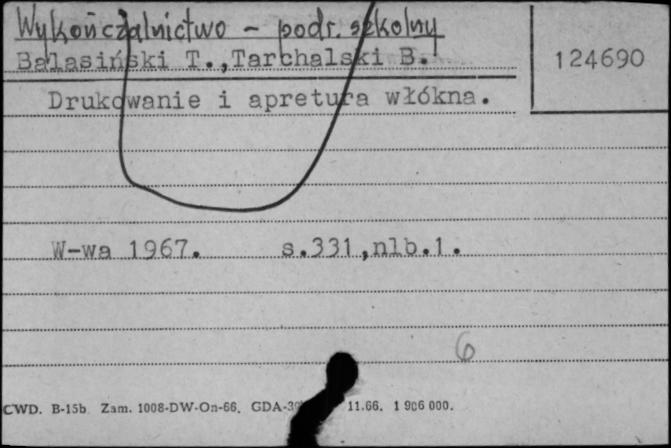 Wykończalnictwo - podr. szkolny
Balasiński T.,Tarchalski B.
124690
Drukowanie i apretura włókna.
W-wa 1967. s.331,nlb.1.
6
CWD. B-15b Zam. 1008-DW-On-66. GDA- 11.66. 1 906 000.